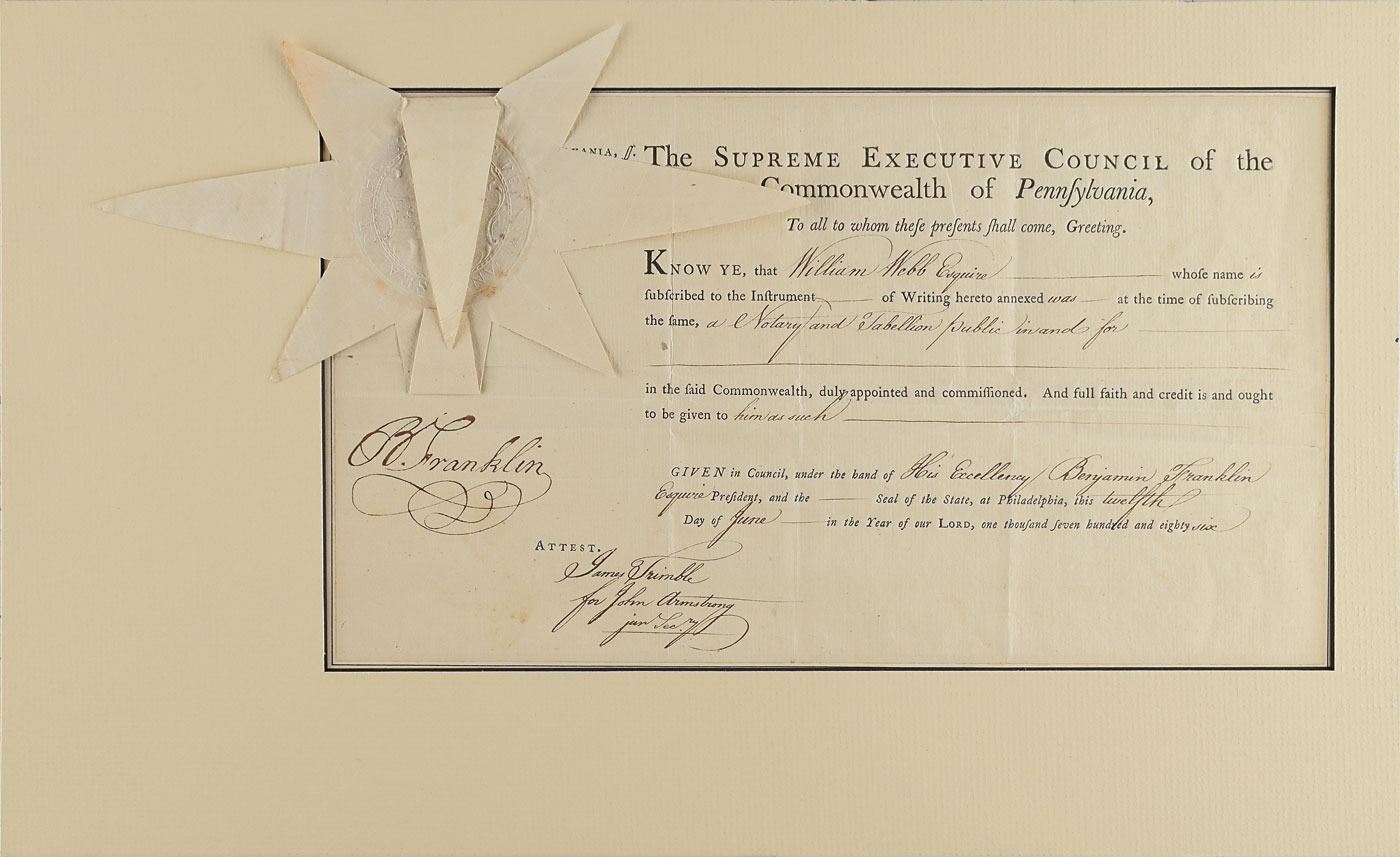 ANIA, ſſ.
The SUPREME EXECUTIVE COUNCIL of the
Commonwealth of Pennſylvania,
To all to whom theſe preſents ſhall come, Greeting.
KNOW YE, that William Webb Esquire whoſe name is
ſubſcribed to the Inſtrument of Writing hereto annexed was at the time of ſubſcribing
the ſame, a Notary and Tabellion public in and for
in the ſaid Commonwealth, duly appointed and commiſſioned. And full faith and credit is and ought
to be given to him as such
B. Franklin
GIVEN in Council, under the hand of His Excellency Benjamin Franklin
Esquire Preſident, and the Seal of the State, at Philadelphia, this twelfth
Day of June in the Year of our LORD, one thouſand ſeven hundred and eighty six
ATTEST.
James Trimble
for John Armstrong
jun Sec.ry